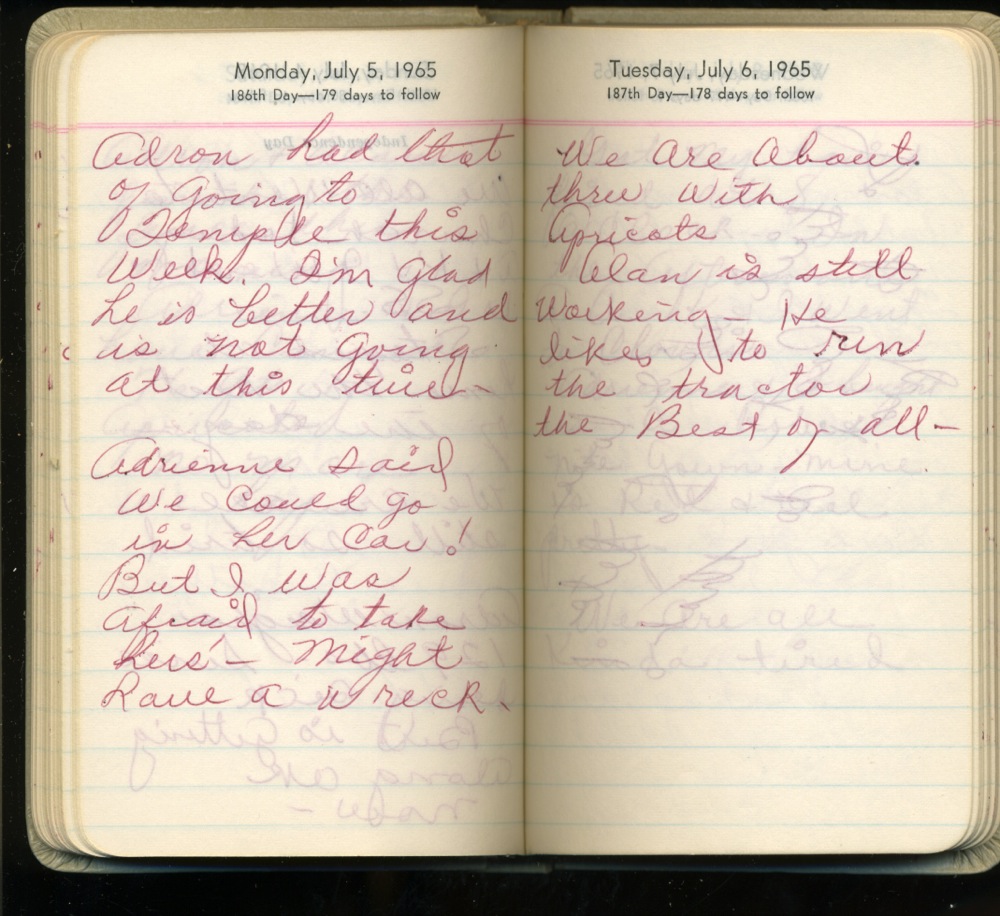 Monday, July 5, 1965
186th Day—179 days to follow
Adron had that
of Going to
Temple this
Week. I'm Glad
he is better and
is not Going
at this time—
Adrienne said
We Could go
in her Car!
But I was
Afraid to take
hers'— Might
have a wreck.
Tuesday, July 6, 1965
187th Day—178 days to follow
We Are About.
thru With
Apricots
Alan is still
Working— He
likes to run
the tractor
the Best of all—